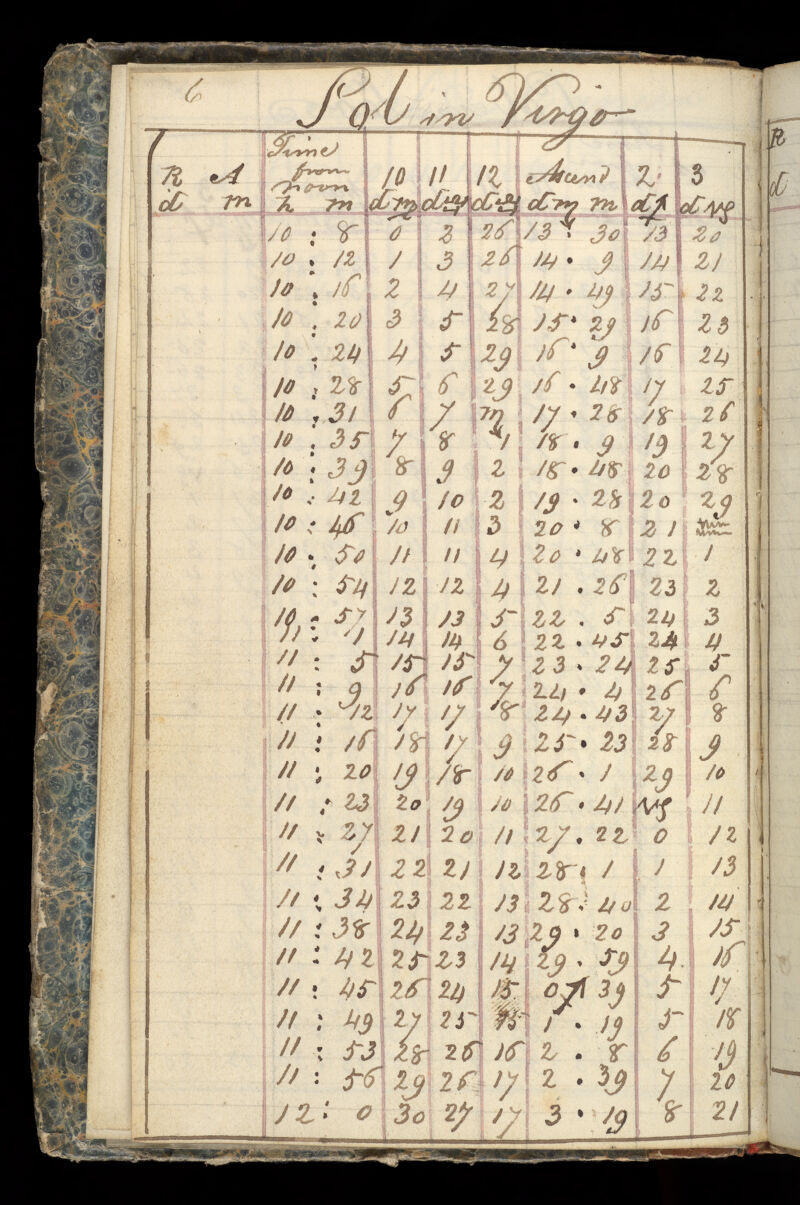 6
Sol in Virgo
Time
from
R A noon 10 11 12 Ascend 2 3
d m h m d ♍ d ♎ d ♎ d ♏ m d ♐ d ♑
10 : 8 0 2 26 13 : 30 13 20
10 : 12 1 3 26 14 . 9 14 21
10 : 16 2 4 27 14 . 49 15 22
10 : 20 3 5 28 15 . 29 16 23
10 : 24 4 5 29 16 . 9 16 24
10 : 28 5 6 29 16 . 48 17 25
10 : 31 6 7 ♏ 17 . 28 18 26
10 : 35 7 8 1 18 . 9 19 27
10 : 39 8 9 2 18 . 48 20 28
10 : 42 9 10 2 19 . 28 20 29
10 : 46 10 11 3 20 . 8 21 ♒
10 : 50 11 11 4 20 . 48 22 1
10 : 54 12 12 4 21 . 26 23 2
10 : 57 13 13 5 22 . 5 24 3
11 : 1 14 14 6 22 . 45 24 4
11 : 5 15 15 7 23 . 24 25 5
11 : 9 16 16 7 24 . 4 26 6
11 : 12 17 17 8 24 . 43 27 8
11 : 16 18 17 9 25 . 23 28 9
11 : 20 19 18 10 26 . 1 29 10
11 : 23 20 19 10 26 . 41 ♑ 11
11 : 27 21 20 11 27 . 22 0 12
11 : 31 22 21 12 28 . 1 1 13
11 : 34 23 22 13 28 . 40 2 14
11 : 38 24 23 13 29 . 20 3 15
11 : 42 25 23 14 29 . 59 4 16
11 : 45 26 24 15 0 ♐ 39 5 17
11 : 49 27 25 15 1 . 19 5 18
11 : 53 28 26 16 2 . 8 6 19
11 : 56 29 26 17 2 . 39 7 20
12 : 0 30 27 17 3 . 19 8 21
R
d